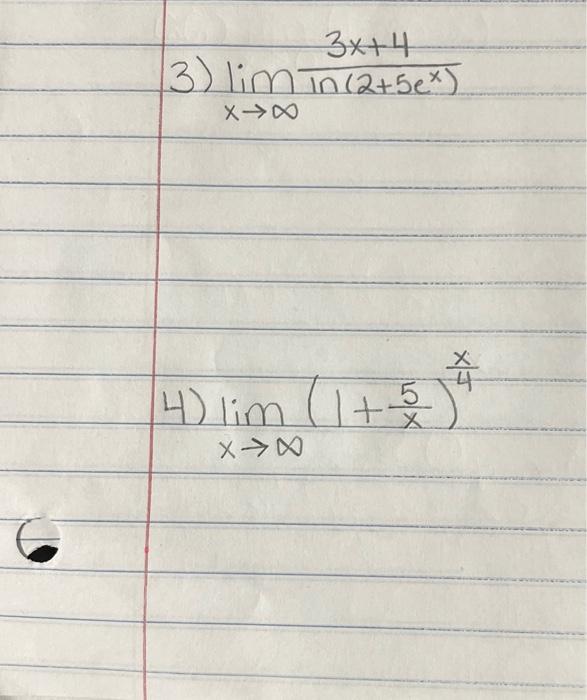 3) lim 3x+4 / ln(2+5eˣ)
x→∞
4) lim (1+5/x)^(x/4)
x→∞